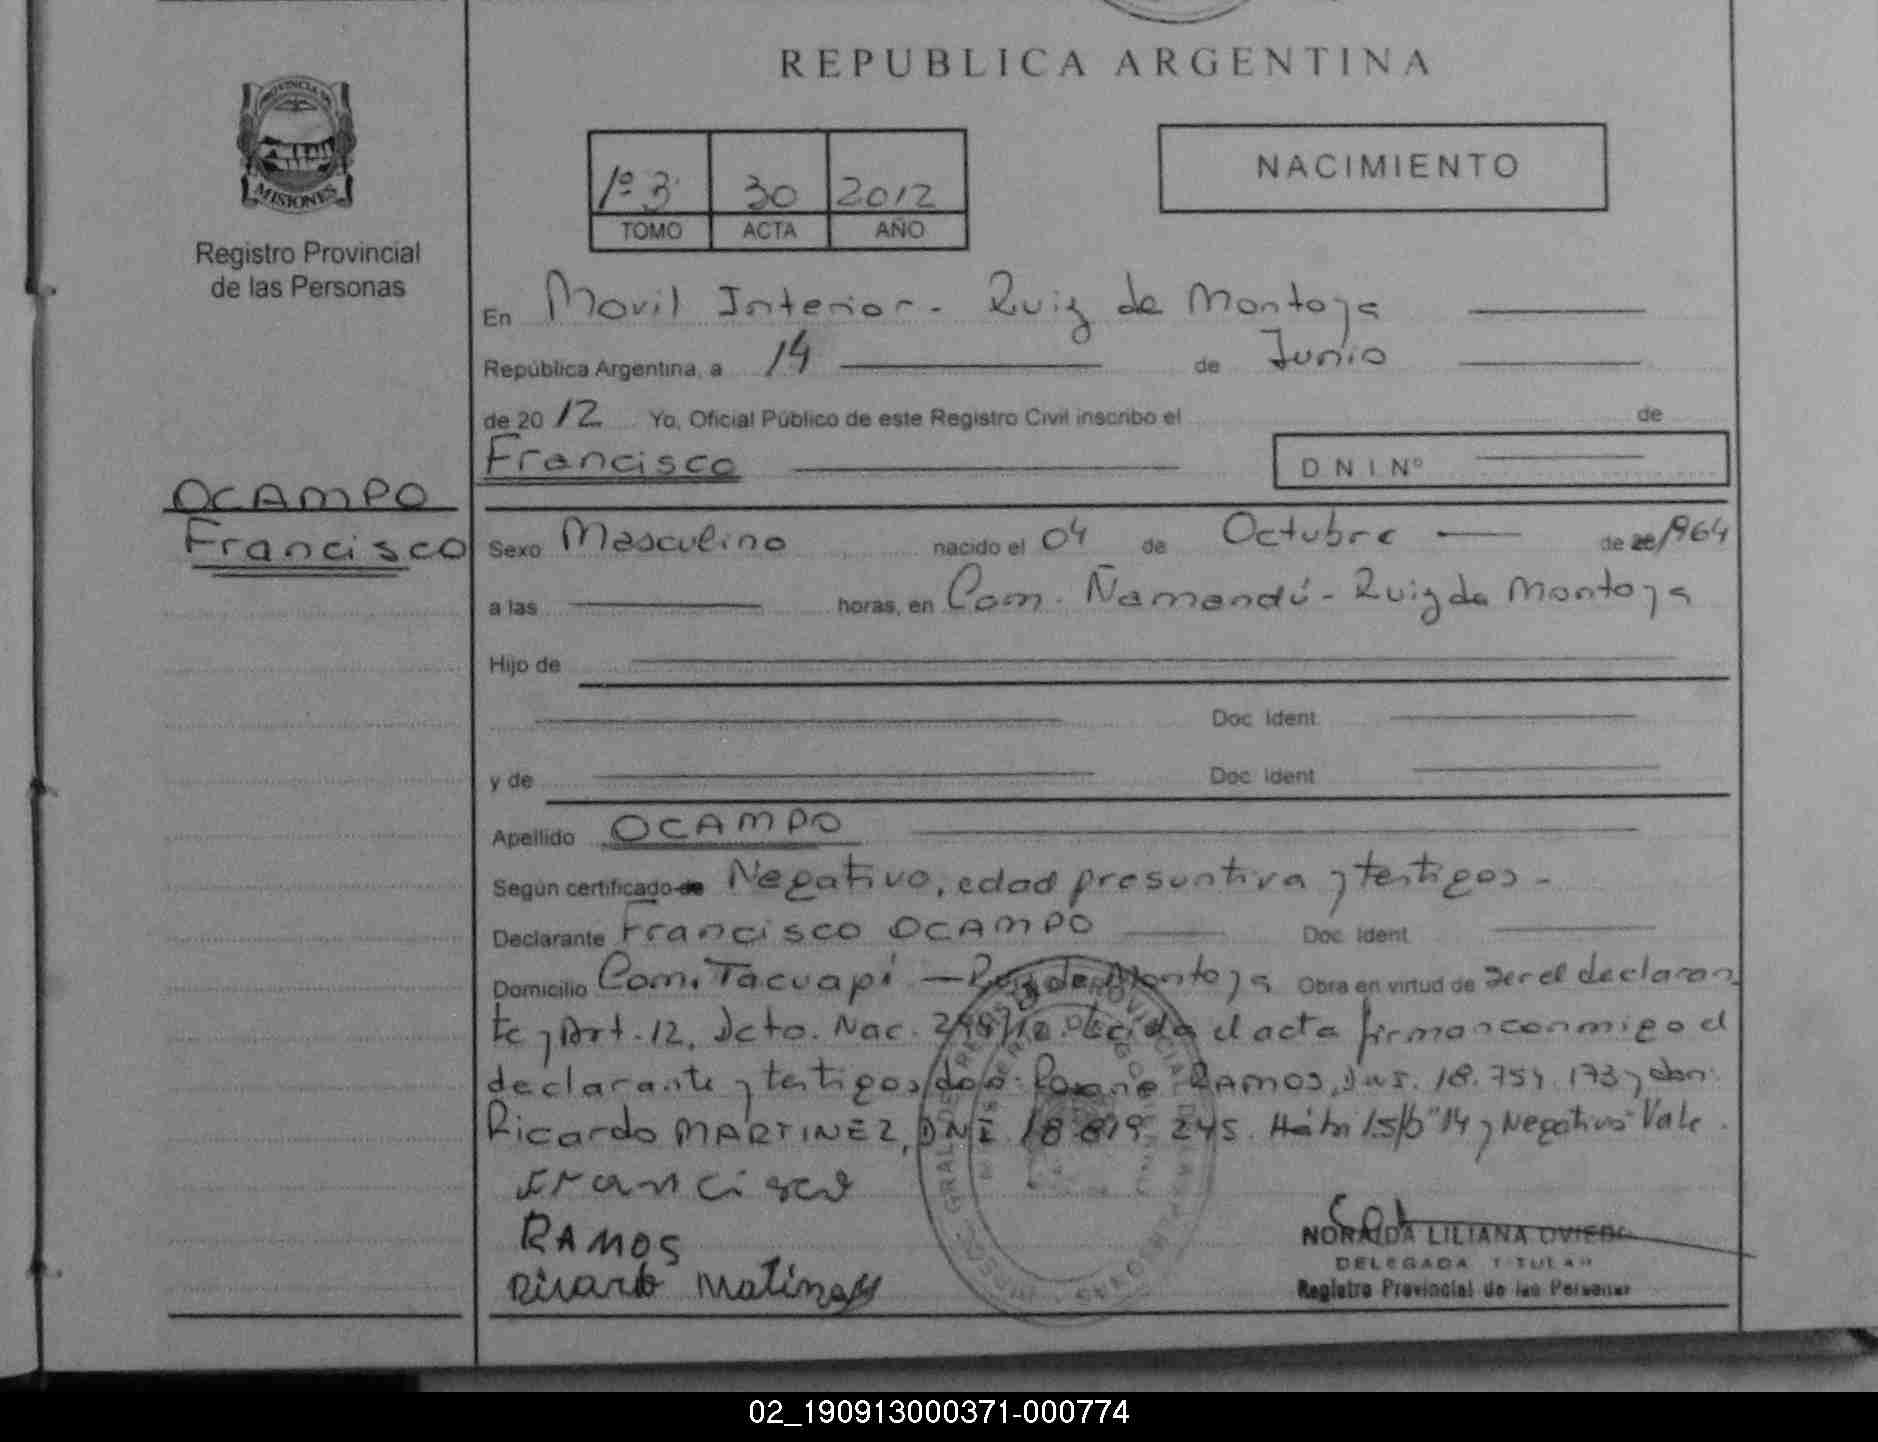 REPUBLICA ARGENTINA
PROVINCIA DE
MISIONES
Registro Provincial
de las Personas
1º 3 30 2012
TOMO ACTA AÑO
NACIMIENTO
En Movil Interior - Ruiz de Montoya
República Argentina, a 14 de Junio
de 20 12 Yo, Oficial Público de este Registro Civil inscribo el de
Francisco D N I Nº
OCAMPO
Francisco
Sexo Masculino nacido el 04 de Octubre de 1964
a las horas, en Com. Ñamandú - Ruiz de Montoya
Hijo de
Doc. Ident.
y de Doc. Ident.
Apellido OCAMPO
Según certificado de Negativo, edad presuntiva y testigos -
Declarante Francisco OCAMPO Doc. Ident.
Domicilio Com. Tacuapí - Ruiz de Montoya Obra en virtud de ser el declaran
te y Art. 12, Dcto. Nac. Leída el acta firman conmigo el
declarante y testigos RAMOS, 173 y don
Ricardo MARTINEZ, DNI 245. "14 y Negativo" Vale.
Francisco
RAMOS
Ricardo Matinez
NORAIDA LILIANA OVIEDO
DELEGADA TITULAR
Registro Provincial de las Personas
02_190913000371-000774